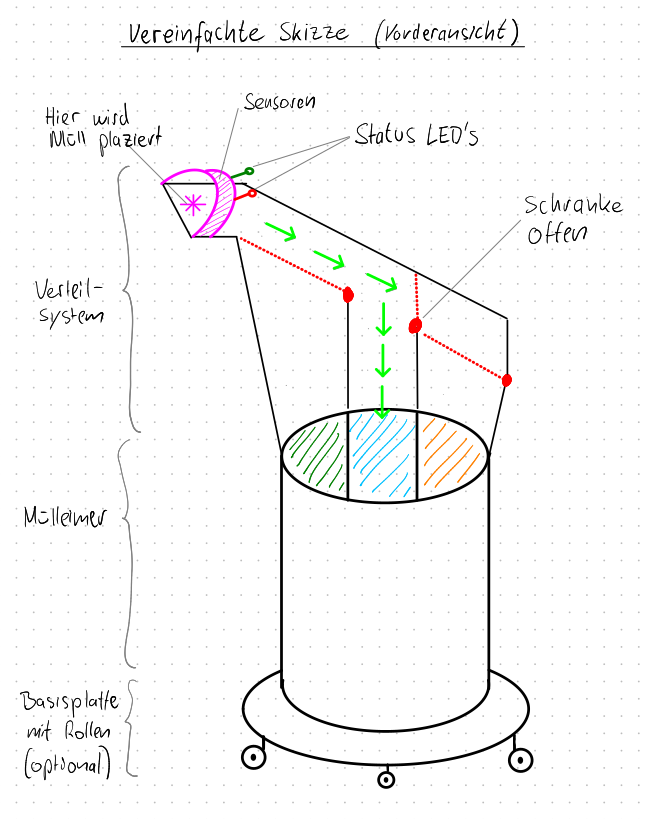 Vereinfachte Skizze (Vorderansicht)
Sensoren
Hier wird
Müll plaziert
Status LED's
Schranke
offen
Verteil-
system
Mülleimer
Basisplatte
mit Rollen
(optional)